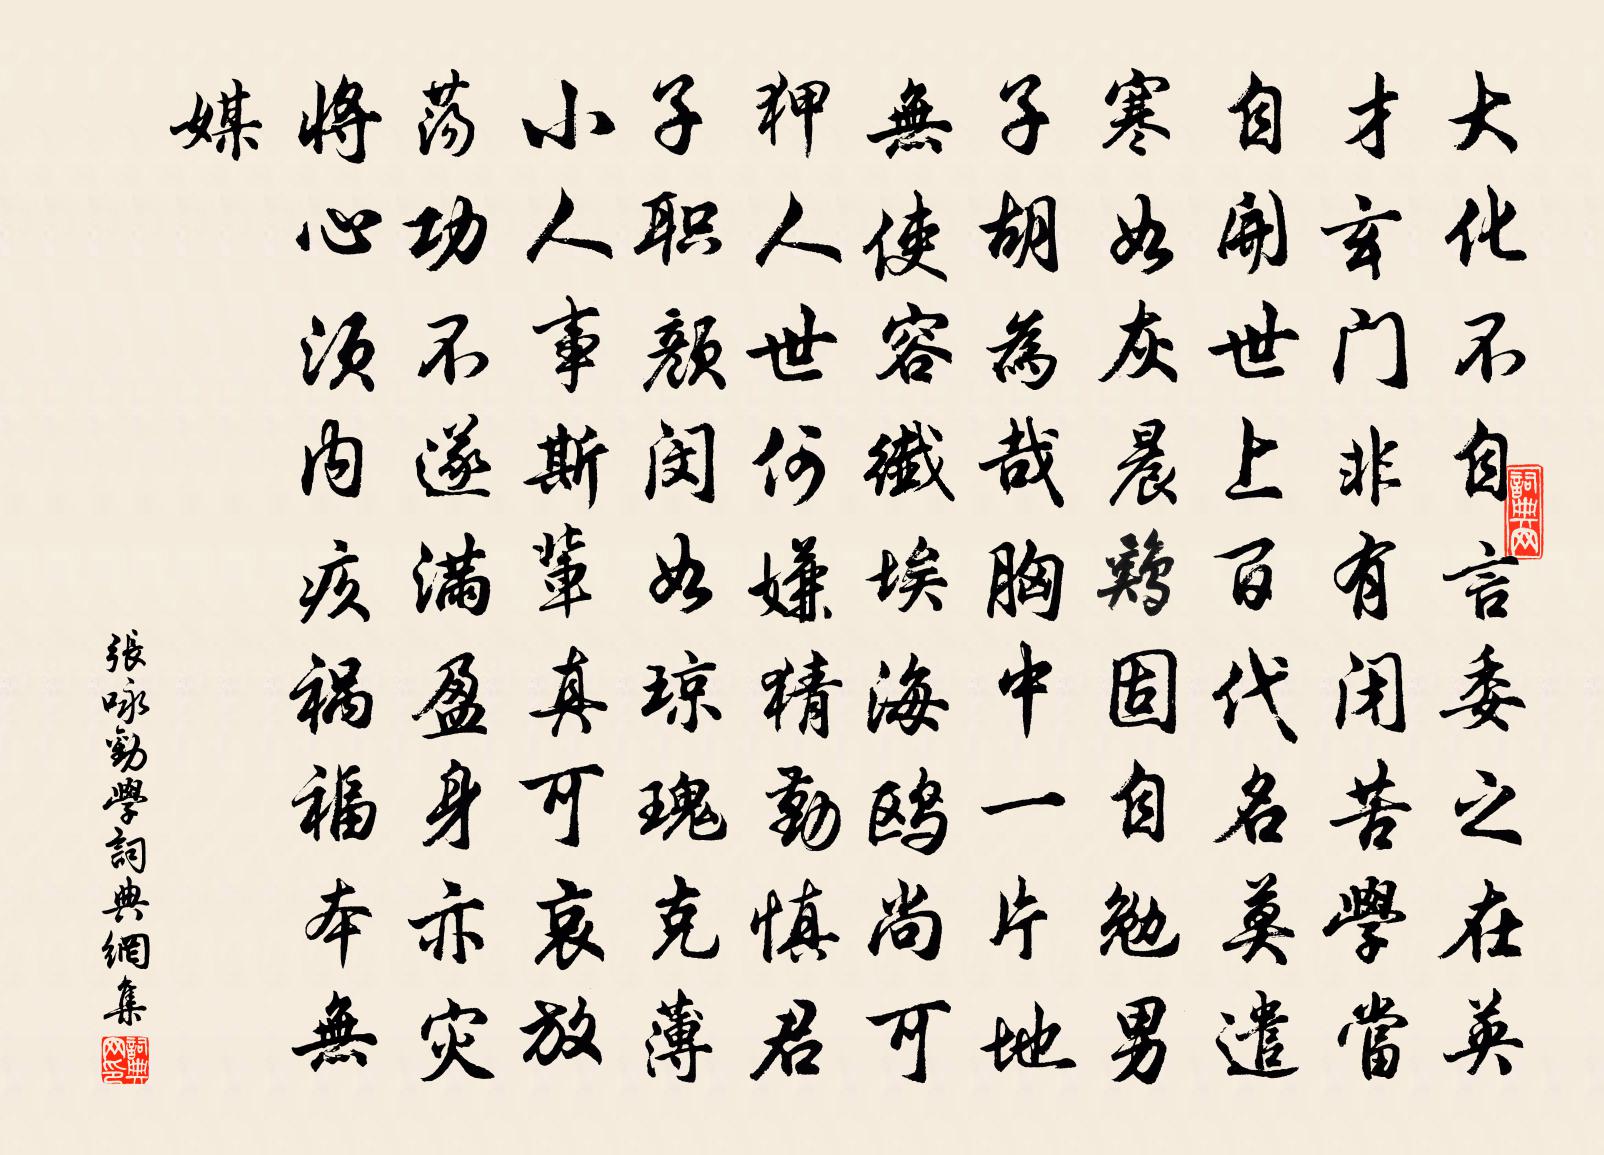 大化不自言委之在英
才玄门非有闭苦學當
自開世上百代名莫遣
寒如灰晨鶏固自勉男
子胡為哉胸中一片地
無使容纖埃海鸥尚可
狎人世何嫌猜勤慎君
子职顔闵如琼瑰克薄
小人事斯輩真可哀放
荡功不遂满盈身亦灾
將心须内疚祸福本無
媒
張咏勸學詞典網集
詞典网
詞典网印